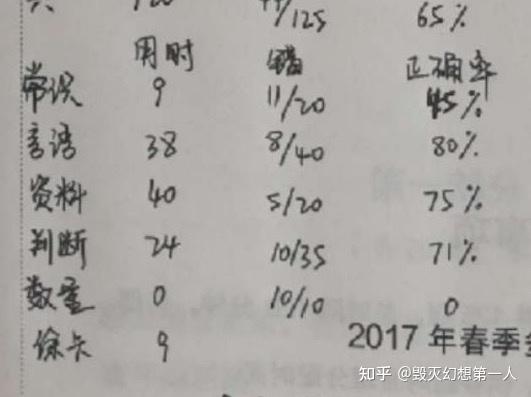 120 44/125 65%
用时 错 正确率
常识 9 11/20 45%
言语 38 8/40 80%
资料 40 5/20 75%
判断 24 10/35 71%
数量 0 10/10 0
涂卡 9
2017年春季
知乎 @毁灭幻想第一人